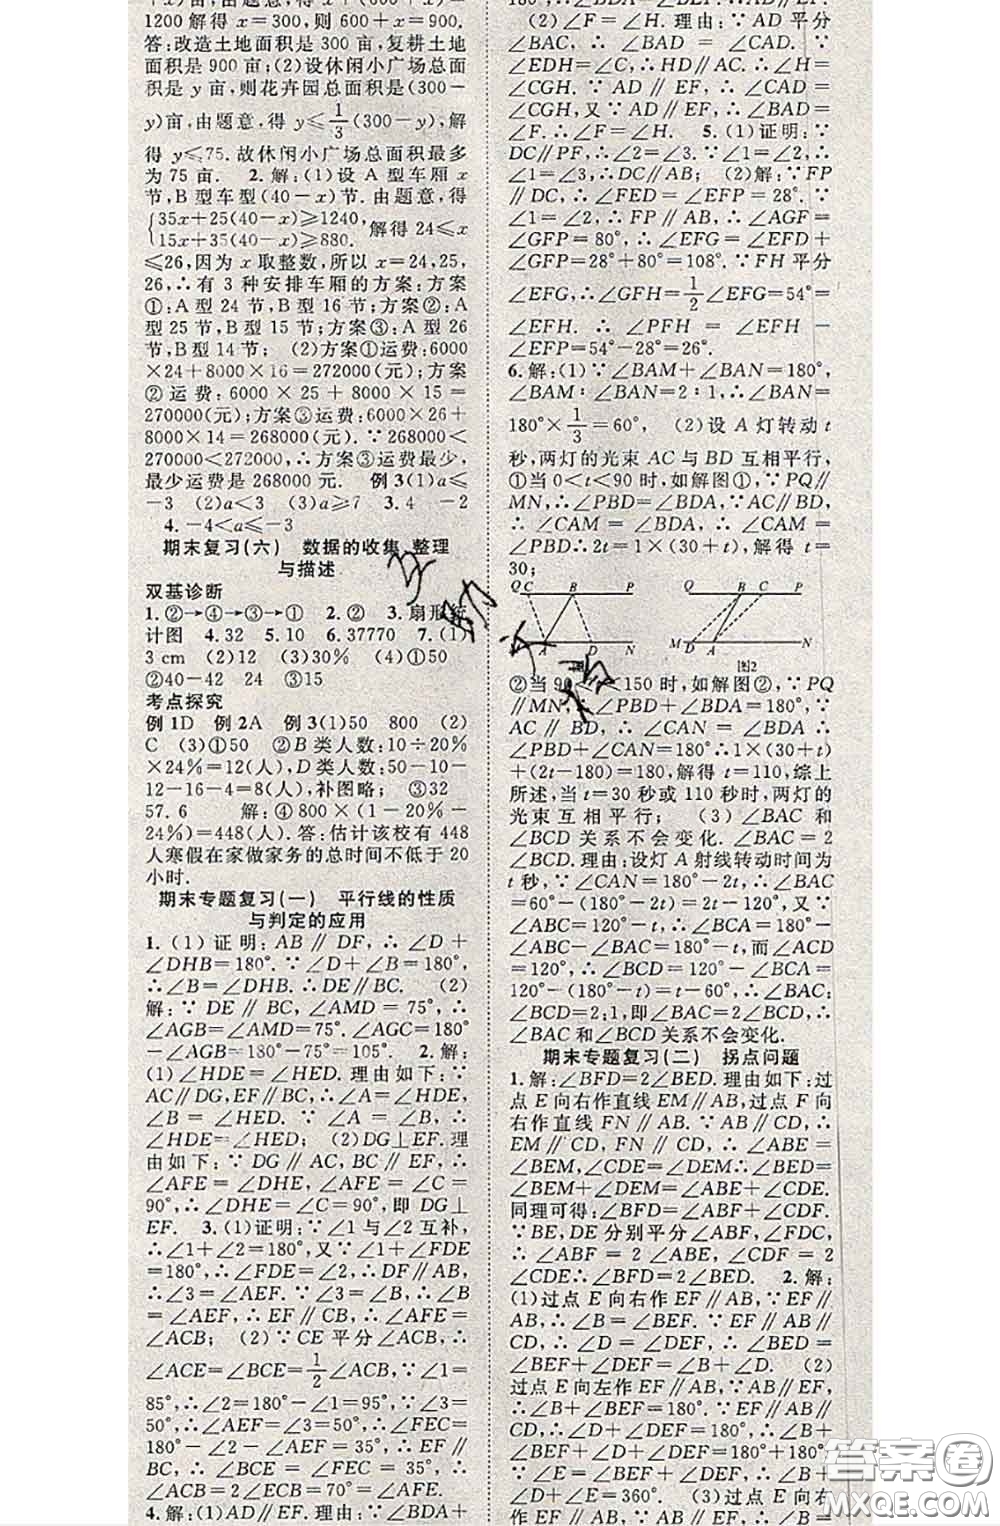 1200解得x=300,则600+x=900.
答:改造土地面积是300亩,复耕土地
面积是900亩;(2)设休闲小广场总面
积是y亩,则花卉园总面积是(300-
y)亩,由题意,得y≤1/3(300-y),解
得y≤75.故休闲小广场总面积最多
为75亩. 2.解:(1)设A型车厢x
节,B型车型(40-x)节.由题意,得
{35x+25(40-x)≥1240,
15x+35(40-x)≥880. 解得24≤x
≤26,因为x取整数,所以x=24,25,
26,∴有3种安排车厢的方案:方案
①:A型24节,B型16节;方案②:A
型25节,B型15节;方案③:A型26
节,B型14节; (2)方案①运费:6000
×24+8000×16=272000(元);方案
②运费:6000×25+8000×15=
270000(元);方案③运费:6000×26+
8000×14=268000(元).∵268000<
270000<272000,∴方案③运费最少,
最少运费是268000元. 例3(1)a≤
-3 (2)a<3 (3)a≥7 3.4 -2
4.-4<a≤-3
期末复习(六) 数据的收集、整理
与描述
双基诊断
1.②→④→③→① 2.② 3.扇形统
计图 4.32 5.10 6.37770 7.(1)
3 cm (2)12 (3)30% (4)①50
②40-42 24 ③15
考点探究
例1D 例2A 例3(1)50 800 (2)
C (3)①50 ②B类人数:10÷20%
×24%=12(人),D类人数:50-10-
12-16-4=8(人),补图略; ③32
57.6 解:④800×(1-20%-
24%)=448(人).答:估计该校有448
人寒假在家做家务的总时间不低于20
小时.
期末专题复习(一) 平行线的性质
与判定的应用
1.(1)证明:AB∥DF,∴∠D+
∠DHB=180°.∵∠D+∠B=180°,
∴∠B=∠DHB.∴DE∥BC. (2)
解:∵DE∥BC,∠AMD=75°,∴
∠AGB=∠AMD=75°.∠AGC=180°
-∠AGB=180°-75°=105°. 2.解:
(1)∠HDE=∠HED.理由如下:∵
AC∥DG,EF∥BC,∴∠A=∠HDE,
∠B=∠HED.∵∠A=∠B,∴
∠HDE=∠HED; (2)DG⊥EF.理
由如下:∵DG∥AC,BC∥EF,∴
∠AFE=∠DHE,∠AFE=∠C=
90°,∴∠DHE=∠C=90°,即DG⊥
EF. 3.(1)证明:∵∠1与∠2互补,
∴∠1+∠2=180°,又∵∠1+∠FDE
=180°,∴∠FDE=∠2,∴DF∥AB,
∴∠3=∠AEF.∵∠3=∠B,∴∠B
=∠AEF,∴EF∥CB,∴∠AFE=
∠ACB; (2)∵CE平分∠ACB,∴
∠ACE=∠BCE=1/2∠ACB,∵∠1=
85°,∴∠2=180°-∠1=95°,∵∠3=
50°,∴∠AEF=∠3=50°,∴∠FEC=
180°-∠2-∠AEF=35°,∴EF∥
BC,∴∠BCE=∠FEC=35°,∴
∠ACB=2∠ECB=70°=∠AFE.
4.解:(1)AD∥EF.理由:∵∠BDA+
(2)∠F=∠H.理由:∵AD平分
∠BAC,∴∠BAD=∠CAD.∵
∠EDH=∠C,∴HD∥AC.∴∠H=
∠CGH.∵AD∥EF,∴∠CAD=
∠CGH,又∵AD∥EF,∴∠BAD=
∠F.∴∠F=∠H. 5.(1)证明:∵
DC∥PF,∴∠2=∠3.∵∠1=∠2,
∴∠1=∠3,∴DC∥AB; (2)解:∵FP
∥DC,∴∠FED=∠EFP=28°.∵
∠1=∠2,∴FP∥AB,∴∠AGF=
∠GFP=80°,∴∠EFG=∠EFD+
∠GFP=28°+80°=108°.∵FH平分
∠EFG,∴∠GFH=1/2∠EFG=54°=
∠EFH.∴∠PFH=∠EFH-
∠EFP=54°-28°=26°.
6.解:(1)∵∠BAM+∠BAN=180°,
∠BAM:∠BAN=2:1,∴∠BAN=
180°×1/3=60°, (2)设A灯转动t
秒,两灯的光束AC与BD互相平行,
①当0<t<90时,如解图①,∵PQ∥
MN,∴∠PBD=∠BDA,∵AC∥BD,
∴∠CAM=∠BDA,∴∠CAM=
∠PBD∴2t=1×(30+t),解得t=
30;
Q C B P
A D N
Q B C P
M D A N
图2
②当90<t<150时,如解图②,∵PQ
∥MN,∴∠PBD+∠BDA=180°,∵
AC∥BD,∴∠CAN=∠BDA∴
∠PBD+∠CAN=180°∴1×(30+t)
+(2t-180)=180,解得t=110,综上
所述,当t=30秒或110秒时,两灯的
光束互相平行; (3)∠BAC和
∠BCD关系不会变化.∠BAC=2
∠BCD.理由:设灯A射线转动时间为
t秒,∵∠CAN=180°-2t,∴∠BAC
=60°-(180°-2t)=2t-120°,又∵
∠ABC=120°-t,∴∠BCA=180°-
∠ABC-∠BAC=180°-t,而∠ACD
=120°,∴∠BCD=120°-∠BCA=
120°-(180°-t)=t-60°,∴∠BAC:
∠BCD=2:1,即∠BAC=2∠BCD,∴
∠BAC和∠BCD关系不会变化.
期末专题复习(二) 拐点问题
1.解:∠BFD=2∠BED.理由如下:过
点E向右作直线EM∥AB,过点F向
右作直线FN∥AB.∵AB∥CD,∴
EM∥CD,FN∥CD,∴∠ABE=
∠BEM,∠CDE=∠DEM∴∠BED=
∠BEM+∠DEM=∠ABE+∠CDE.
同理可得:∠BFD=∠ABF+∠CDF.
∵BE,DE分别平分∠ABF,∠FDC,
∴∠ABF=2∠ABE,∠CDF=2
∠CDE∴∠BFD=2∠BED. 2.解:
(1)过点E向右作EF∥AB,∵EF∥
AB,∴∠B=∠BEF,∵AB∥CD,∴EF∥
CD,∴∠D=∠DEF,∴∠BED=
∠BEF+∠DEF=∠B+∠D. (2)
过点E向左作EF∥AB,∵AB∥EF,
AB∥CD,∴EF∥CD,∴∠B+
∠BEF+∠D+∠DEF=180°+180°
∵∠E=∠BEF+∠DEF,∴∠B+
∠D+∠E=360°. (3)过点E向右
答案圈
MXQE.COM